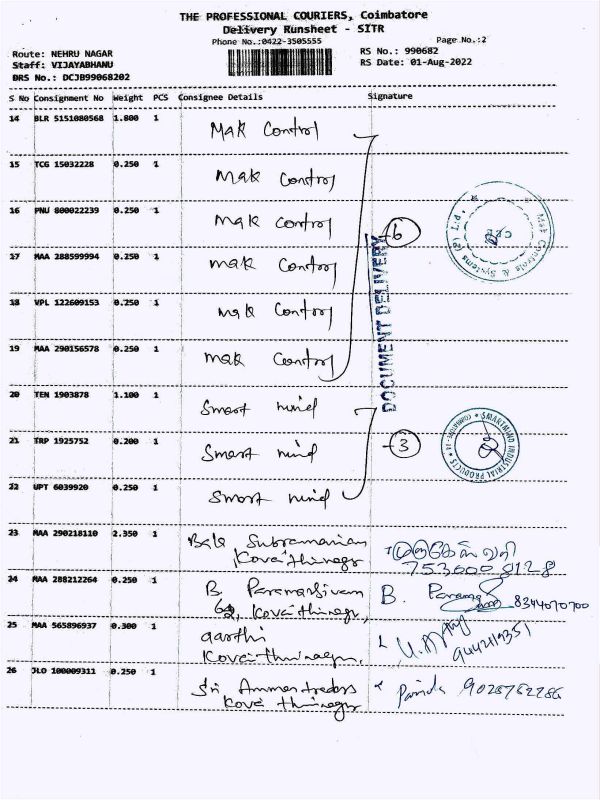 THE PROFESSIONAL COURIERS, Coimbatore
Delivery Runsheet - SITR
Phone No.:0422-3505555
Page No.:2
Route: NEHRU NAGAR
RS No.: 990682
Staff: VIJAYABHANU
RS Date: 01-Aug-2022
DRS No.: DCJB99068202
S No Consignment No Weight PCS Consignee Details Signature
14 BLR 5151080568 1.800 1 Mak Control
15 TCG 15032228 0.250 1 Mak Control
16 PNU 800022239 0.250 1 Mak Control
6
17 MAA 288599994 0.250 1 Mak Control
18 VPL 122609153 0.250 1 Mak Control
19 MAA 290156578 0.250 1 Mak Control
DOCUMENT DELIVERY
Mak Controls & Systems (P) LT
20 TEN 1903878 1.100 1 Smart mind
21 TRP 1925752 0.200 1 Smart mind
3
SMARTMIND INDUSTRIAL PRODUCTS
22 UPT 6039920 0.250 1 Smart mind
23 MAA 290218110 2.350 1 Bala Subramanian
Kovaithinagr
24 MAA 288212264 0.250 1 B. Paramasivam B. Parama
62, Kovaithinagr, 8344070700
25 MAA 565896937 0.300 1 aarthi
Kovaithinagr,
26 JLO 100009311 0.250 1 Sri Amman traders 9028782286
Kovaithinagr